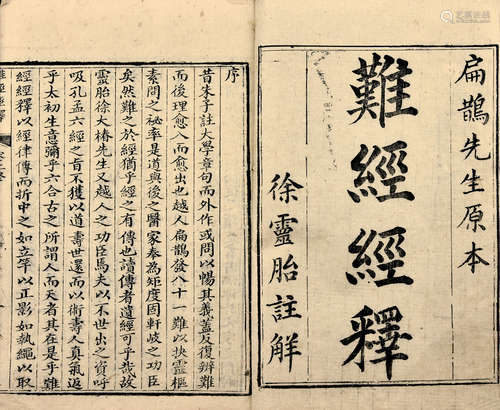 扁鵲先生原本
難經經釋
徐靈胎註解
序
昔朱子註大學章句而外作或問以暢其義蓋反復辨難
而後理愈入而愈出也越人扁鵲發八十一難以抉靈樞
素問之秘率是道與後之醫家奉為矩度固軒岐之功臣
矣然難之於經猶乎經之有傳也讀傳者遺經可乎哉故
靈胎徐大椿先生又越人之功臣焉夫以不世出之資呼
吸孔孟六經之旨不獲以道壽世還而以術壽人真氣返
乎太初生意彌乎六合古之所謂人而天者其在是乎難
經經釋以經律傳而折中之如立竿以正影如執繩以取